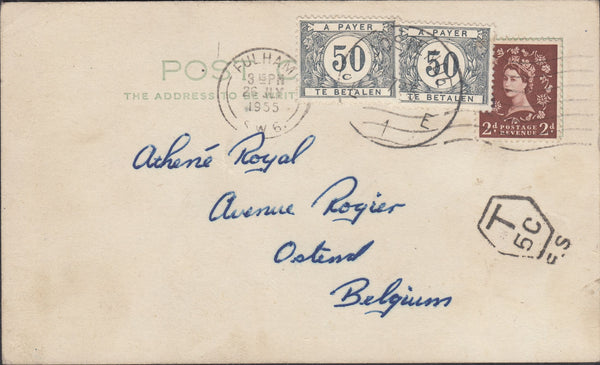 POST
THE ADDRESS TO
FULHAM
3 15 PM
1955
S.W.6.
A PAYER
50
TE BETALEN
A PAYER
50
TE BETALEN
E
2d POSTAGE REVENUE 2d
Athené Royal
Avenue Rogier
Ostend
Belgium
T
5C